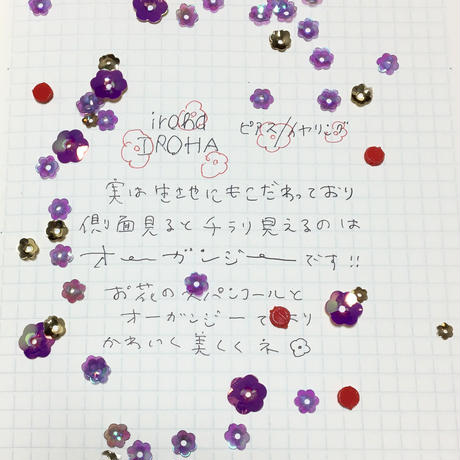 iroha
IROHA
ピアス/イヤリング
実は生地にもこだわっており
側面見るとチラリ見えるのは
オーガンジーです!!
お花のスパンコールと
オーガンジーでより
かわいく美しくネ